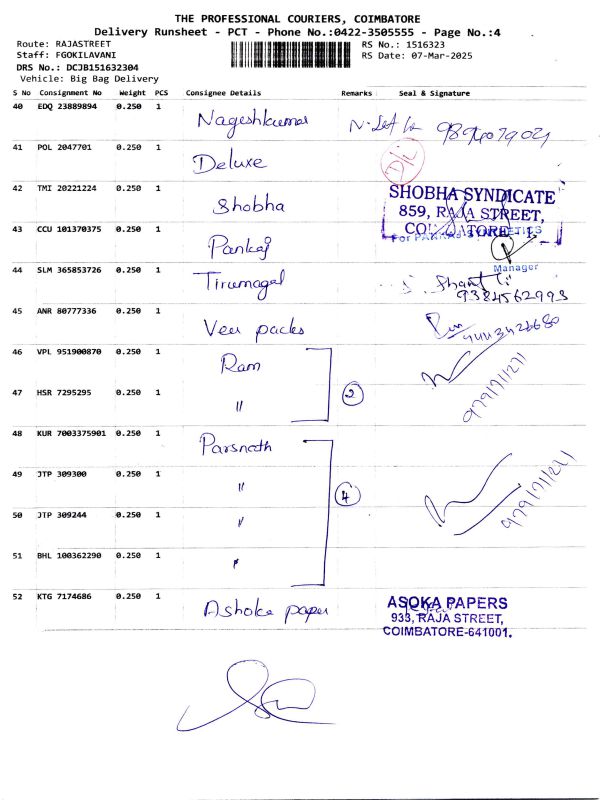 THE PROFESSIONAL COURIERS, COIMBATORE
Delivery Runsheet - PCT - Phone No.:0422-3505555 - Page No.:4
Route: RAJASTREET RS No.: 1516323
Staff: FGOKILAVANI RS Date: 07-Mar-2025
DRS No.: DCJB151632304
Vehicle: Big Bag Delivery
S No Consignment No Weight PCS Consignee Details Remarks Seal & Signature
40 EDQ 23889894 0.250 1 Nageshkumar
41 POL 2047701 0.250 1 Deluxe
42 TMI 20221224 0.250 1 Shobha SHOBHA SYNDICATE
859, RAJA STREET,
COIMBATORE - 1.
43 CCU 101370375 0.250 1 Pankaj
Manager
44 SLM 365853726 0.250 1 Tirumagal
9384562993
45 ANR 80777336 0.250 1 Veer packs 9443426680
46 VPL 951900870 0.250 1 Ram
47 HSR 7295295 0.250 1 " 2 979171271
48 KUR 7003375901 0.250 1 Parsnath
49 JTP 309300 0.250 1 " 4 979171221
50 JTP 309244 0.250 1 "
51 BHL 100362290 0.250 1 "
52 KTG 7174686 0.250 1 Ashoke paper ASOKA PAPERS
933, RAJA STREET,
COIMBATORE-641001.